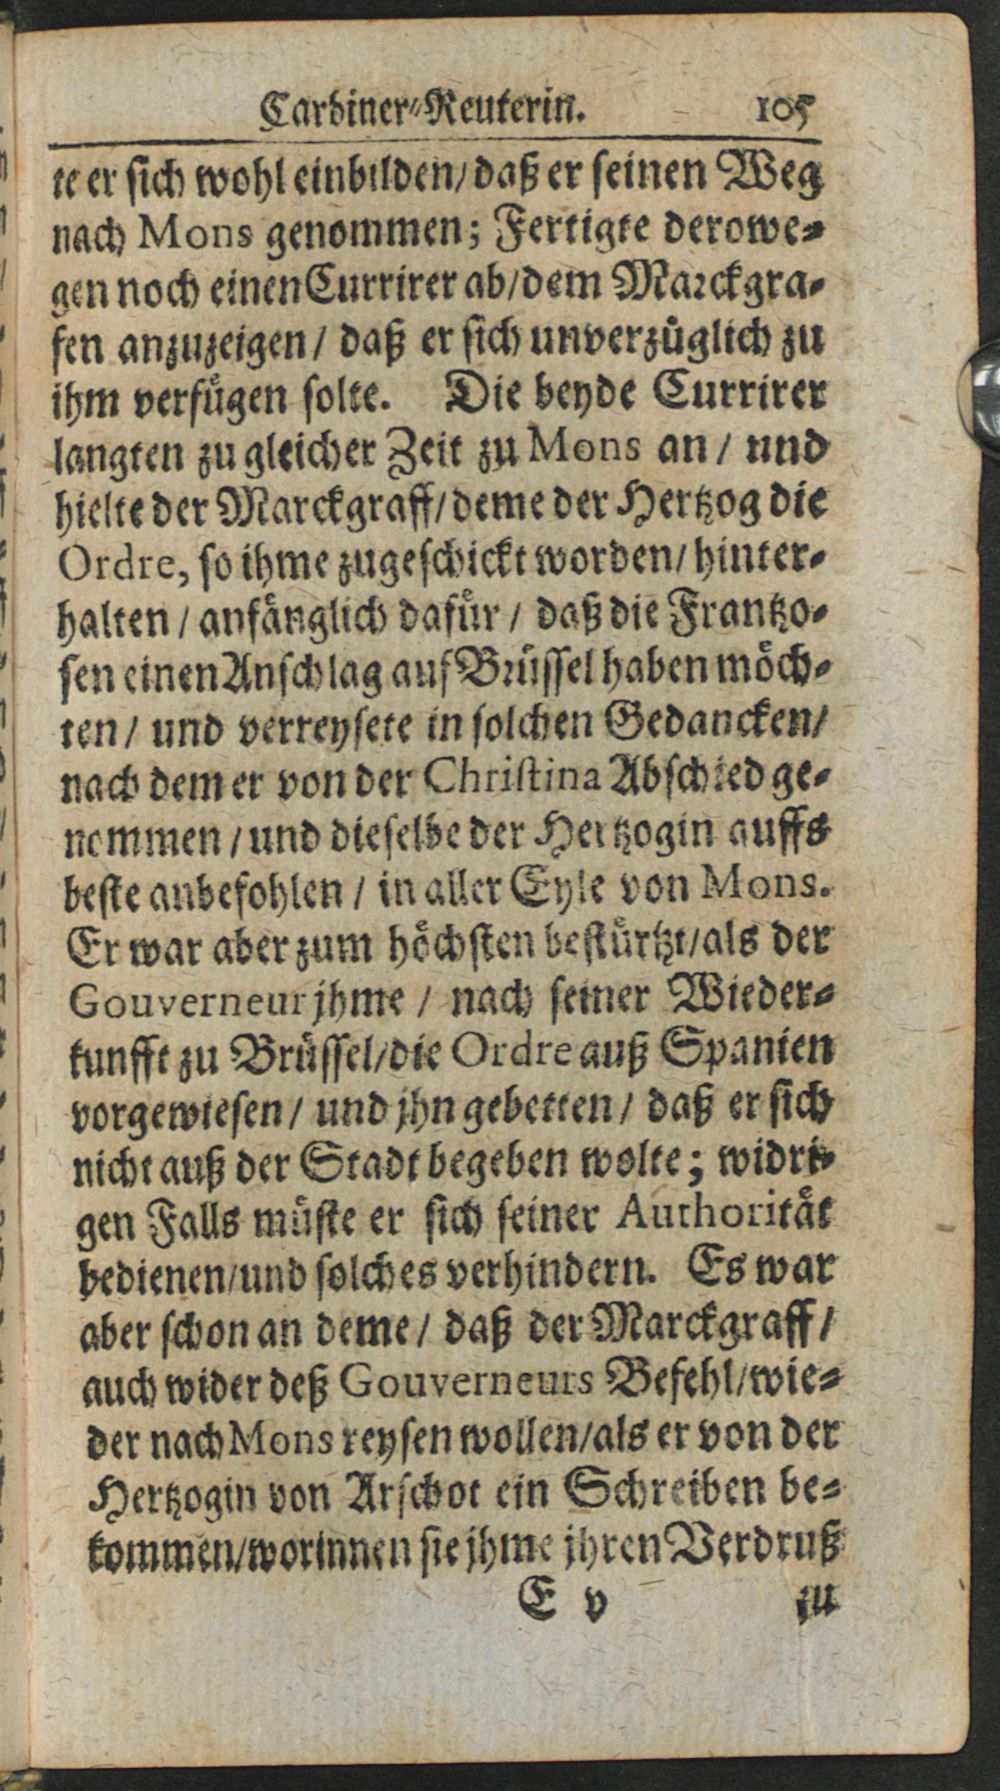 Cardiner-Reuterin. 105
te er sich wohl einbilden/ daß er seinen Weg
nach Mons genommen; Fertigte derowe-
gen noch einen Currirer ab/ dem Marckgra-
fen anzuzeigen / daß er sich unverzüglich zu
ihm verfügen solte. Die beyde Currirer
langten zu gleicher Zeit zu Mons an / und
hielte der Marckgraff/ deme der Hertzog die
Ordre, so ihme zugeschickt worden/ hinter-
halten / anfänglich dafür / daß die Frantzo-
sen einen Anschlag auf Brüssel haben möch-
ten / und verreysete in solchen Gedancken/
nach dem er von der Christina Abschied ge-
nommen / und dieselbe der Hertzogin auffs
beste anbefohlen / in aller Eyle von Mons.
Er war aber zum höchsten bestürtzt/ als der
Gouverneur jhme / nach seiner Wieder-
kunfft zu Brüssel/ die Ordre auß Spanien
vorgewiesen / und jhn gebetten / daß er sich
nicht auß der Stadt begeben wolte; widri-
gen Falls müste er sich seiner Authorität
bedienen/ und solches verhindern. Es war
aber schon an deme / daß der Marckgraff /
auch wider deß Gouverneurs Befehl/ wie-
der nach Mons reysen wollen/ als er von der
Hertzogin von Arschot ein Schreiben be-
kommen/ worinnen sie jhme jhren Verdruß
E v zu